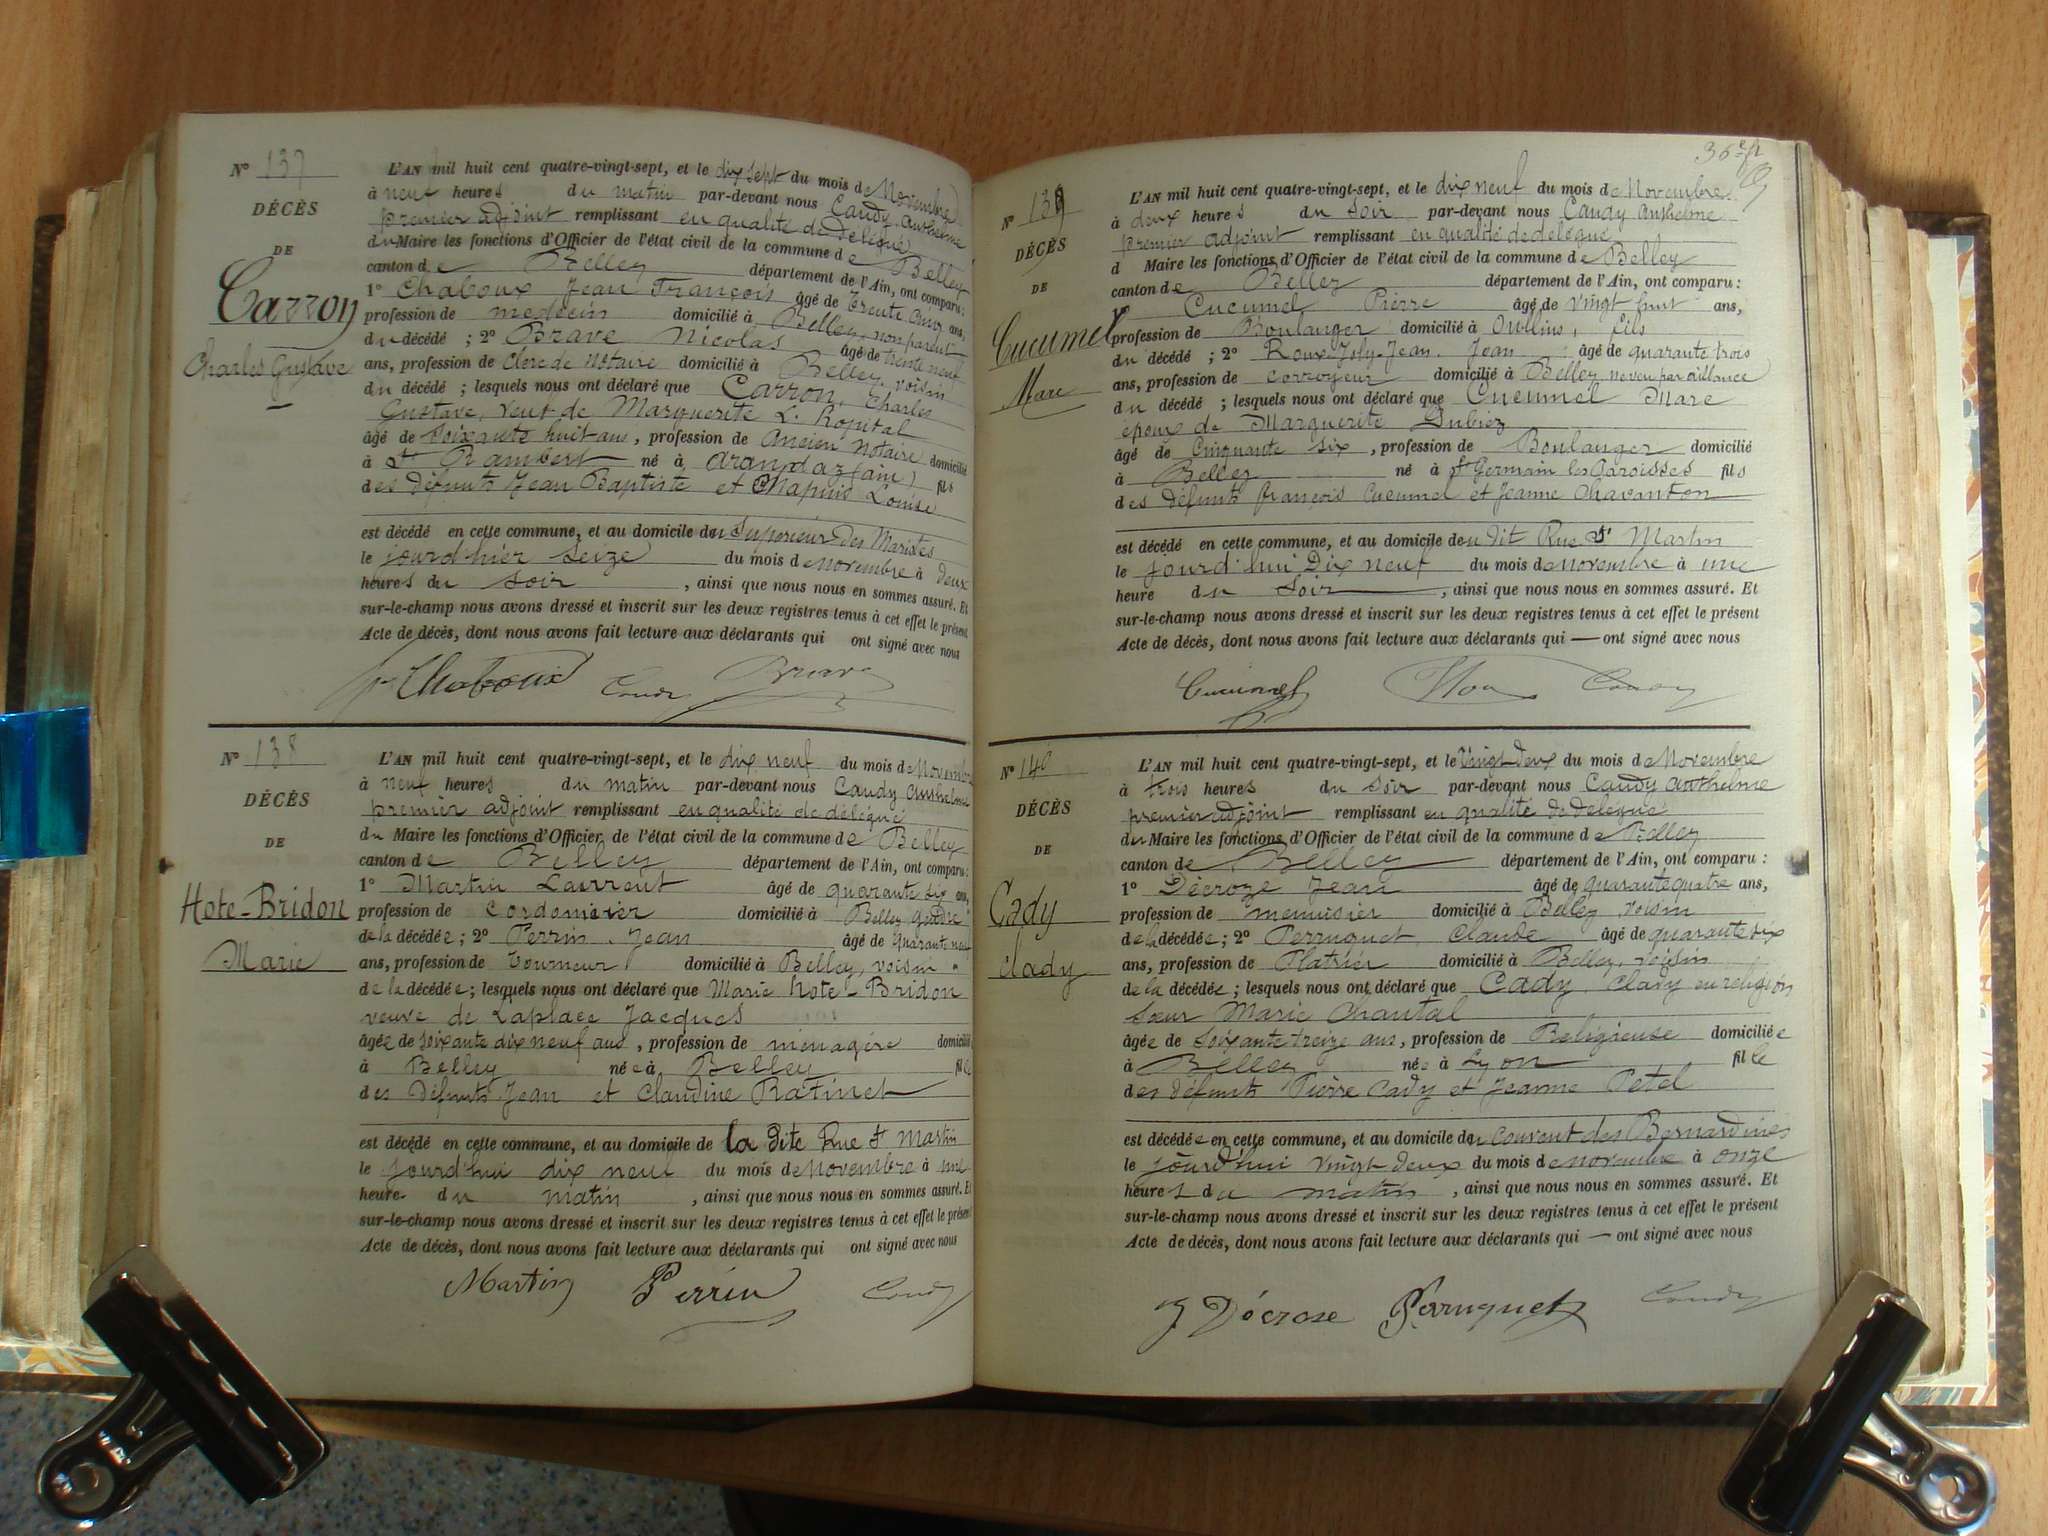 N° 137
DÉCÈS
DE
Carron
Charles Gustave
L'AN mil huit cent quatre-vingt-sept, et le dix sept du mois de Novembre
à neuf heures du matin par-devant nous Caudy Anthelme
premier adjoint remplissant en qualité de délégué
du Maire les fonctions d'Officier de l'état civil de la commune de Belley
canton de Belley département de l'Ain, ont comparu:
1° Chaboux Jean François âgé de trente cinq ans,
profession de medecin domicilié à Belley, non parent
du décédé ; 2° Brave Nicolas âgé de trente neuf
ans, profession de Clerc de Notaire domicilié à Belley, voisin
du décédé ; lesquels nous ont déclaré que Carron, Charles
Gustave, veuf de Marguerite L'hopital
âgé de soixante huit ans, profession de Ancien Notaire domicilié
à St Rambert né à Arandaz (ain) fils
des défunts Jean Baptiste et Chapuis Louise
est décédé en cette commune, et au domicile du Superieur des Maristes
le jourd'hier seize du mois de novembre à deux
heures du soir, ainsi que nous nous en sommes assuré. Et
sur-le-champ nous avons dressé et inscrit sur les deux registres tenus à cet effet le présent
Acte de décès, dont nous avons fait lecture aux déclarants qui ont signé avec nous
Chaboux Caudy Brave
N° 138
DÉCÈS
DE
Hote-Bridon
Marie
L'AN mil huit cent quatre-vingt-sept, et le dix neuf du mois de Novembre
à neuf heures du matin par-devant nous Caudy Anthelme
premier adjoint remplissant en qualité de délégué
du Maire les fonctions d'Officier de l'état civil de la commune de Belley
canton de Belley département de l'Ain, ont comparu:
1° Martin Laurent âgé de quarante six ans,
profession de Cordonnier domicilié à Belley, Gendre
de la décédée ; 2° Perrin Jean âgé de quarante neuf
ans, profession de Tourneur domicilié à Belley, voisin
de la décédée ; lesquels nous ont déclaré que Marie hote-Bridon
veuve de Laplace Jacques
âgée de soixante dix neuf ans, profession de ménagère domicilié
à Belley née à Belley fille
des Défunts Jean et Claudine Ratinet
est décédé en cette commune, et au domicile de la dite Rue St Martin
le jourd'hui dix neuf du mois de Novembre à une
heure du matin, ainsi que nous nous en sommes assuré. Et
sur-le-champ nous avons dressé et inscrit sur les deux registres tenus à cet effet le présent
Acte de décès, dont nous avons fait lecture aux déclarants qui ont signé avec nous
Martin Perrin Caudy
N° 139
DÉCÈS
DE
Cucumel
Marc
L'AN mil huit cent quatre-vingt-sept, et le dix neuf du mois de Novembre
à deux heures du soir par-devant nous Caudy Anthelme
premier adjoint remplissant en qualité de délégué
d Maire les fonctions d'Officier de l'état civil de la commune de Belley
canton de Belley département de l'Ain, ont comparu:
1° Cucumel Pierre âgé de vingt huit ans,
profession de Boulanger domicilié à Oullins, fils
du décédé ; 2° Roux-Joly-Jean. Jean âgé de quarante trois
ans, profession de corroyeur domicilié à Belley, neveu par alliance
du décédé ; lesquels nous ont déclaré que Cucumel Marc
époux de Marguerite Dubiez
âgé de Cinquante six, profession de Boulanger domicilié
à Belley né à St Germain les Paroisses fils
des défunts françois Cucumel et Jeanne Chavanton
est décédé en cette commune, et au domicile deu dit Rue St Martin
le jourd'hui Dix neuf du mois de novembre à une
heure du soir, ainsi que nous nous en sommes assuré. Et
sur-le-champ nous avons dressé et inscrit sur les deux registres tenus à cet effet le présent
Acte de décès, dont nous avons fait lecture aux déclarants qui — ont signé avec nous
Cucumel Caudy
N° 140
DÉCÈS
DE
Cady
clady
L'AN mil huit cent quatre-vingt-sept, et le vingt-deux du mois de Novembre
à trois heures du soir par-devant nous Caudy Anthelme
premier adjoint remplissant en qualité de délégué
du Maire les fonctions d'Officier de l'état civil de la commune de Belley
canton de Belley département de l'Ain, ont comparu :
1° Décroze Jean âgé de quarante quatre ans,
profession de menuisier domicilié à Belley voisin
de la décédée ; 2° Perruquet Claude âgé de quarante six
ans, profession de Platrier domicilié à Belley, voisin
de la décédée ; lesquels nous ont déclaré que Cady. Clady en religion
Sœur Marie Chantal
âgée de soixante treize ans, profession de Religieuse domiciliée
à Belley née à Lyon fille
des défunts Pierre Cady et Jeanne Petel
est décédée en cette commune, et au domicile du couvent des Bernardines
le jourd'hui vingt deux du mois de novembre à onze
heures du matin, ainsi que nous nous en sommes assuré. Et
sur-le-champ nous avons dressé et inscrit sur les deux registres tenus à cet effet le présent
Acte de décès, dont nous avons fait lecture aux déclarants qui — ont signé avec nous
J Décrose Perruquet Caudy